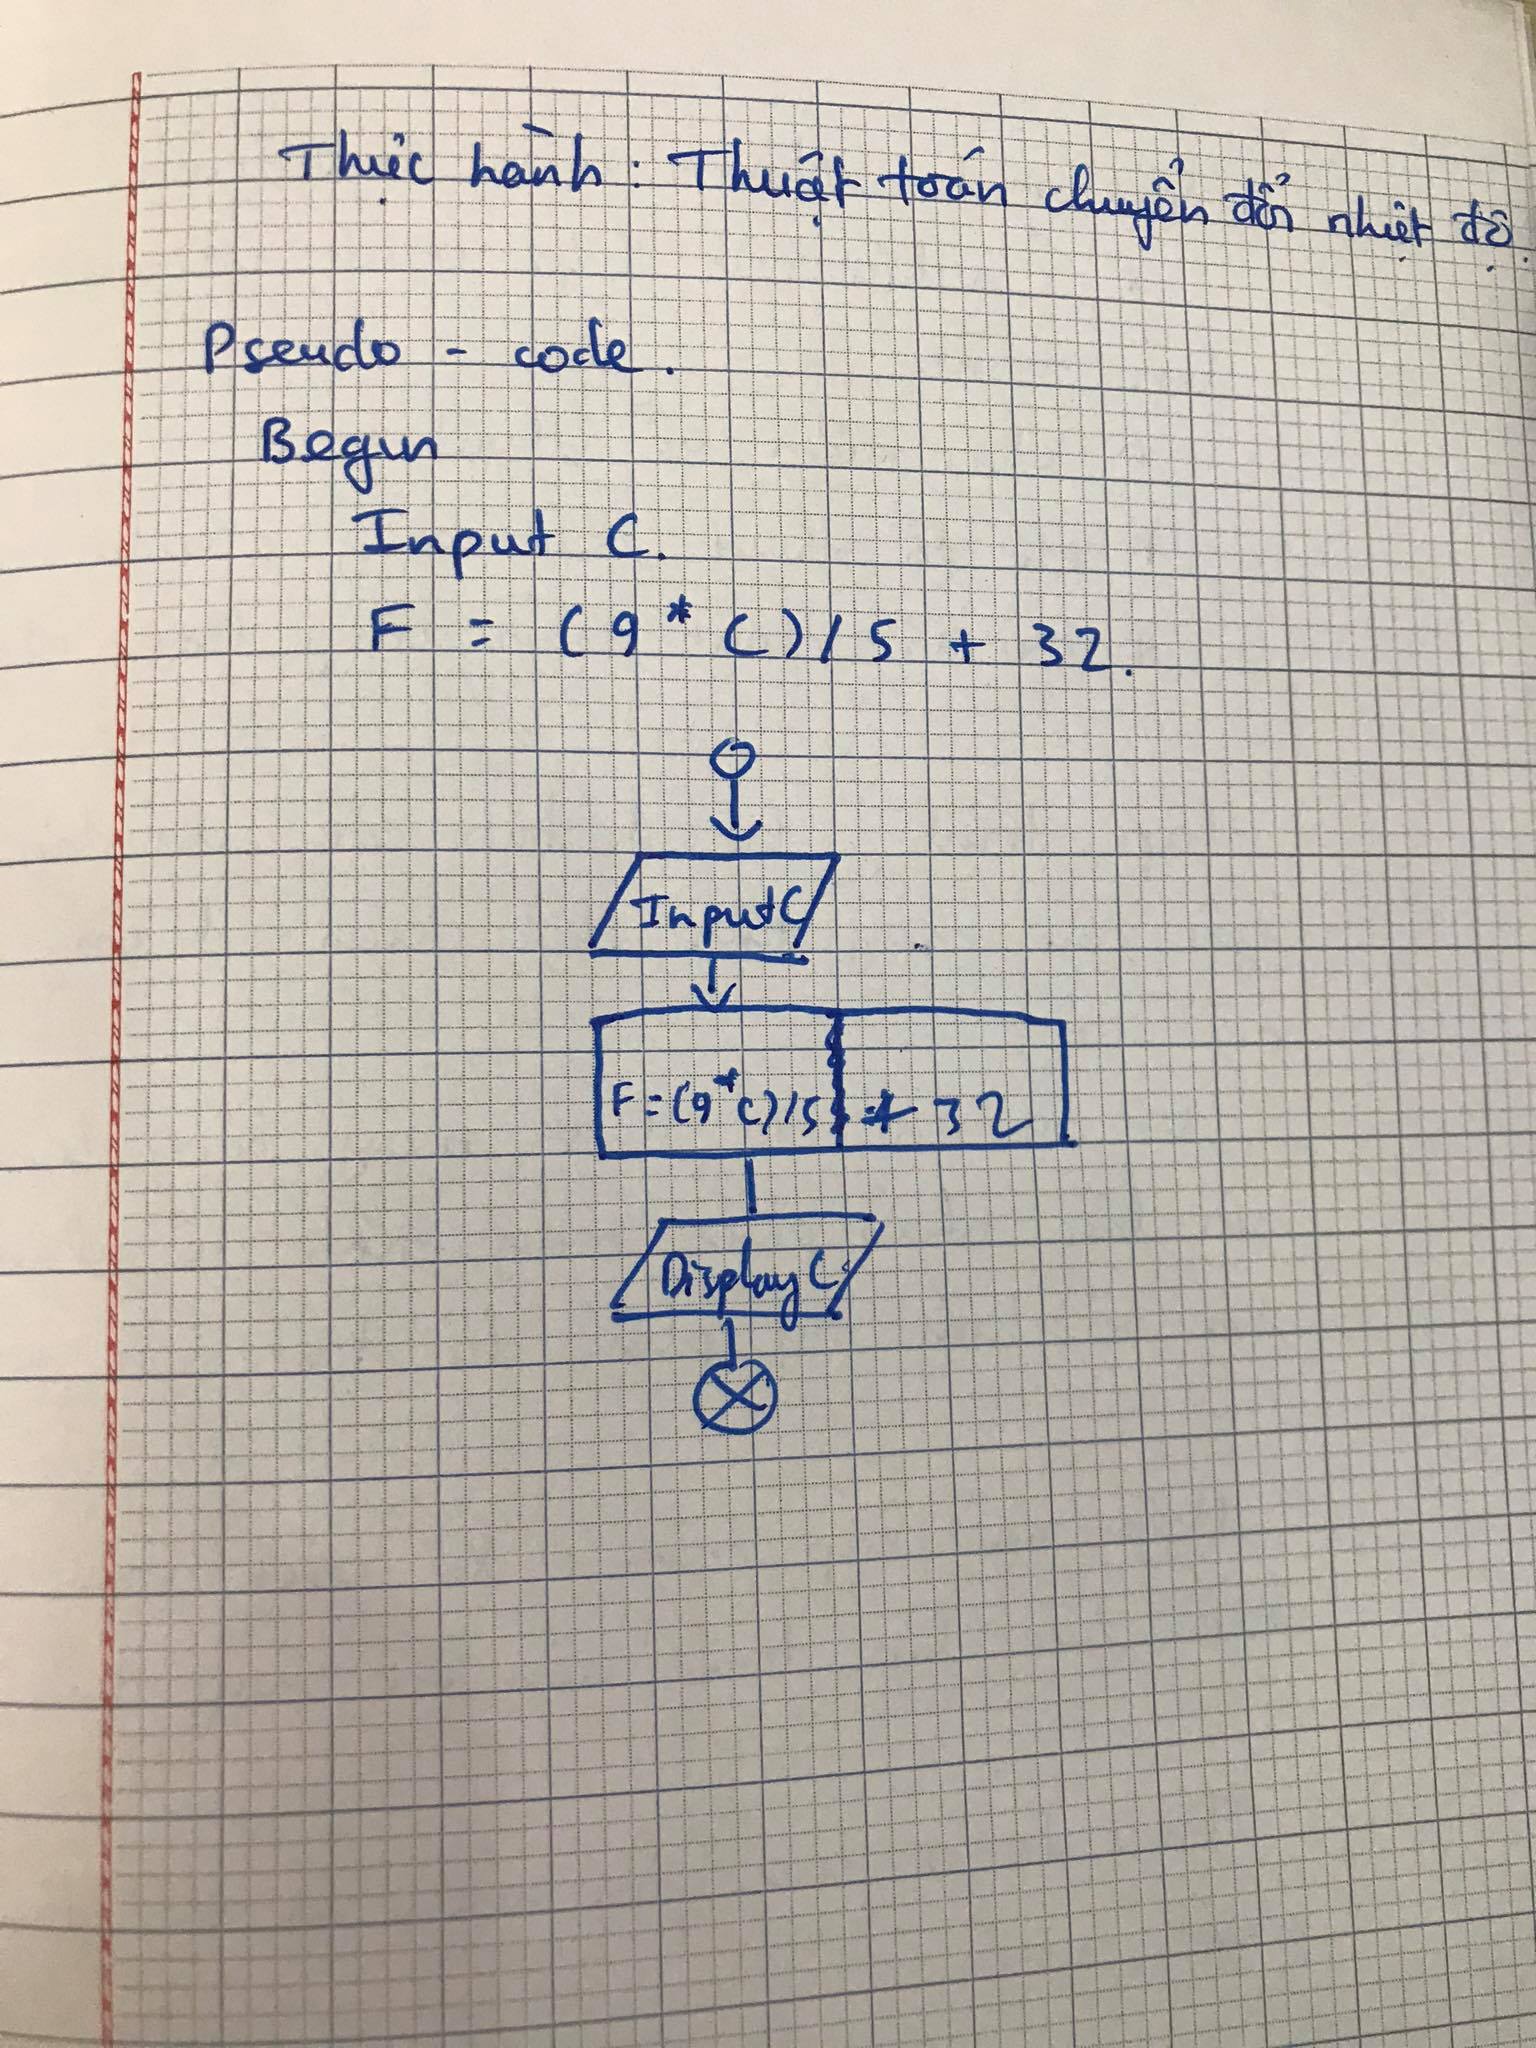 Thực hành: Thuật toán chuyển đổi nhiệt độ.
Pseudo - code.
Begin
Input C.
F = (9* C)/5 + 32.
Input C
F = (9*C)/5 + 32
Display C